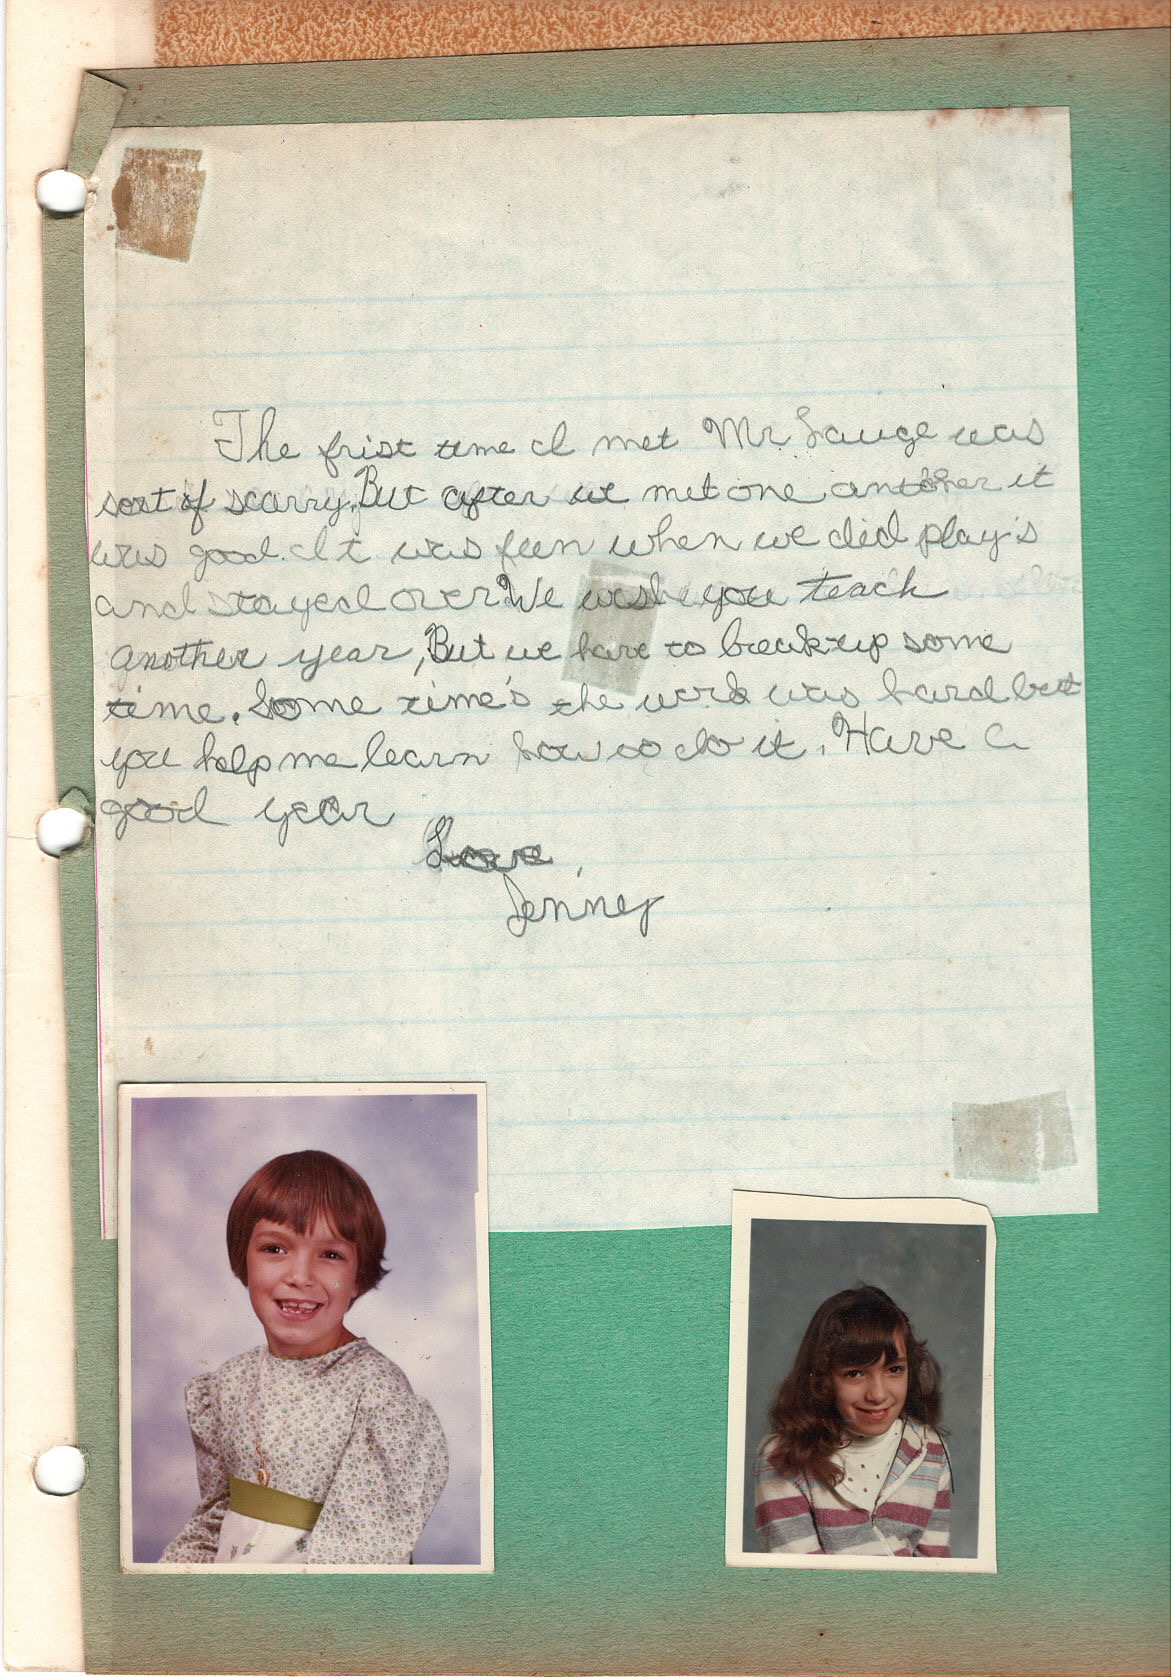 The frist time I met Mr Lauge was
sort of scarry. But after we met one another it
was good. It was fun when we did play's
and stayed over We wish you teach
another year, But we have to break up some
time. Some time's the work was hard but
you help me learn how to do it. Have a
good year
Love,
Jenney